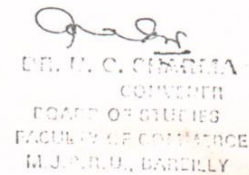 DR. N. C. SHARMA
CONVENER
BOARD OF STUDIES
FACULTY OF COMMERCE
M.J.P.R.U., BAREILLY